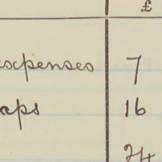 £
expenses 7
aps 16